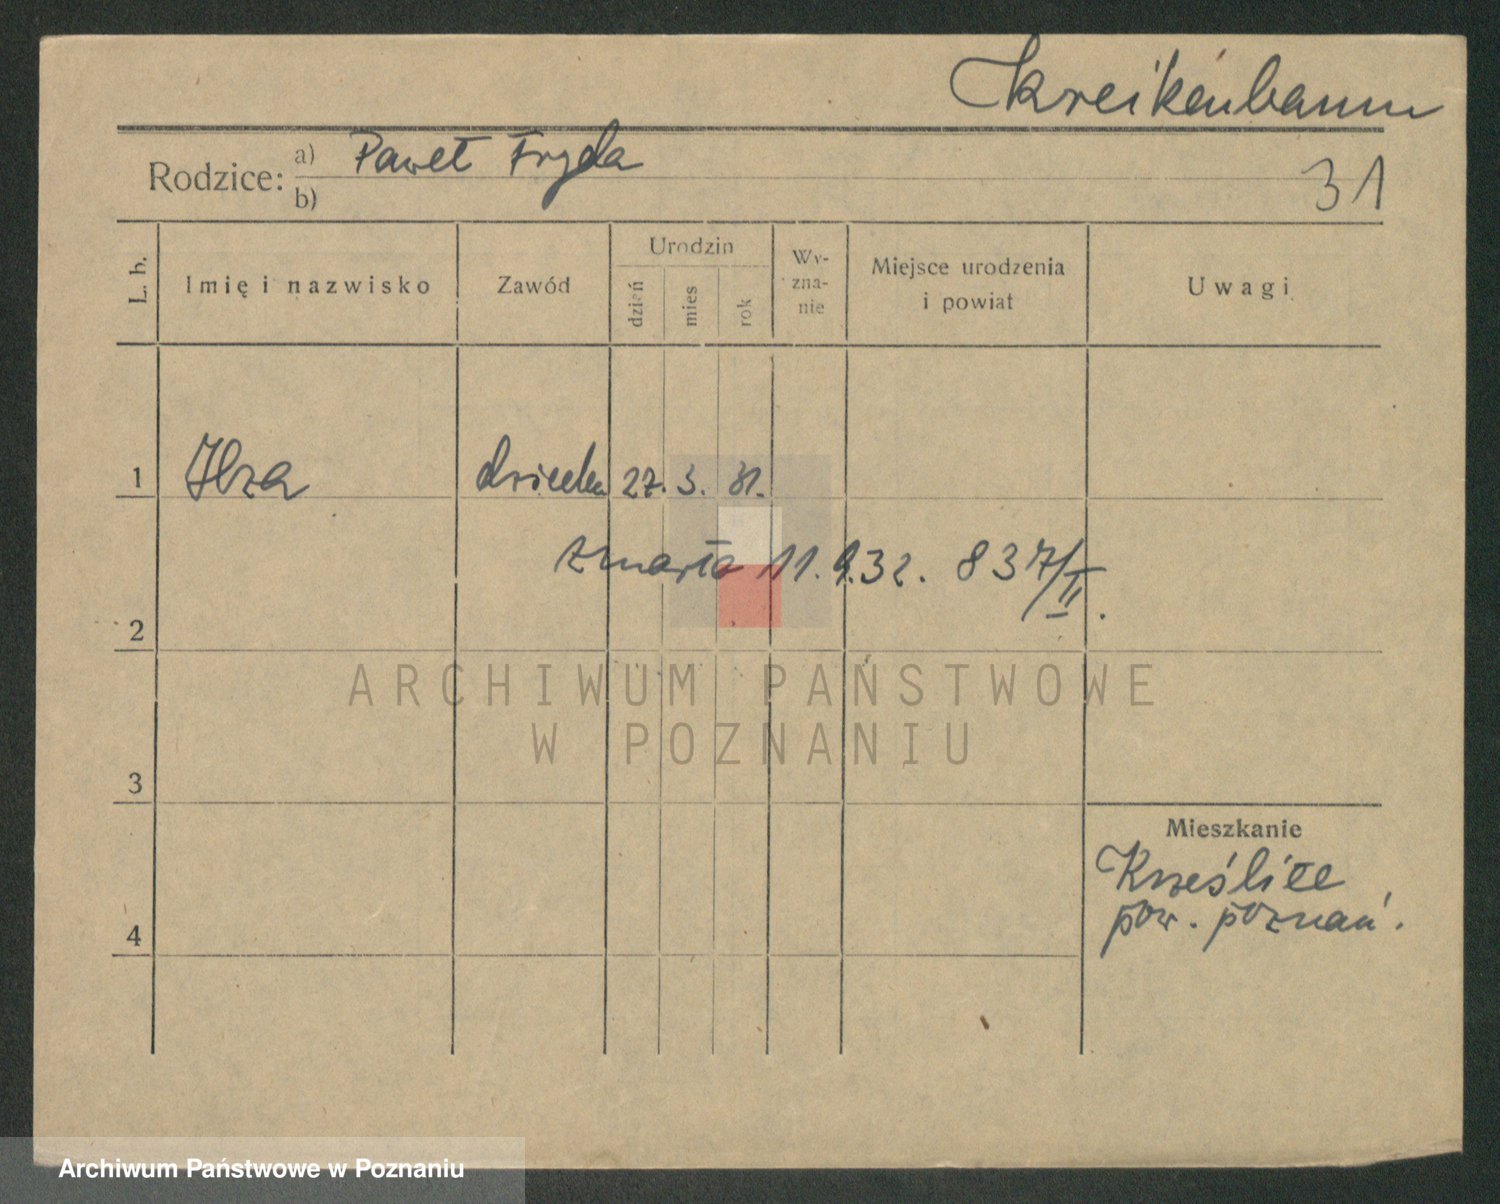 Kreikenbaum
Rodzice: a) Paweł Fryda
b)
31
L. b. Imię i nazwisko Zawód Urodzin dzień mies rok Wy-zna-nie Miejsce urodzenia i powiat Uwagi
1 Ilza dziecko 27. 3. 31.
zmarła 11.9.32. 837/II.
2
ARCHIWUM PAŃSTWOWE
W POZNANIU
3
Mieszkanie
Krześlice
pow. poznań.
4
Archiwum Państwowe w Poznaniu